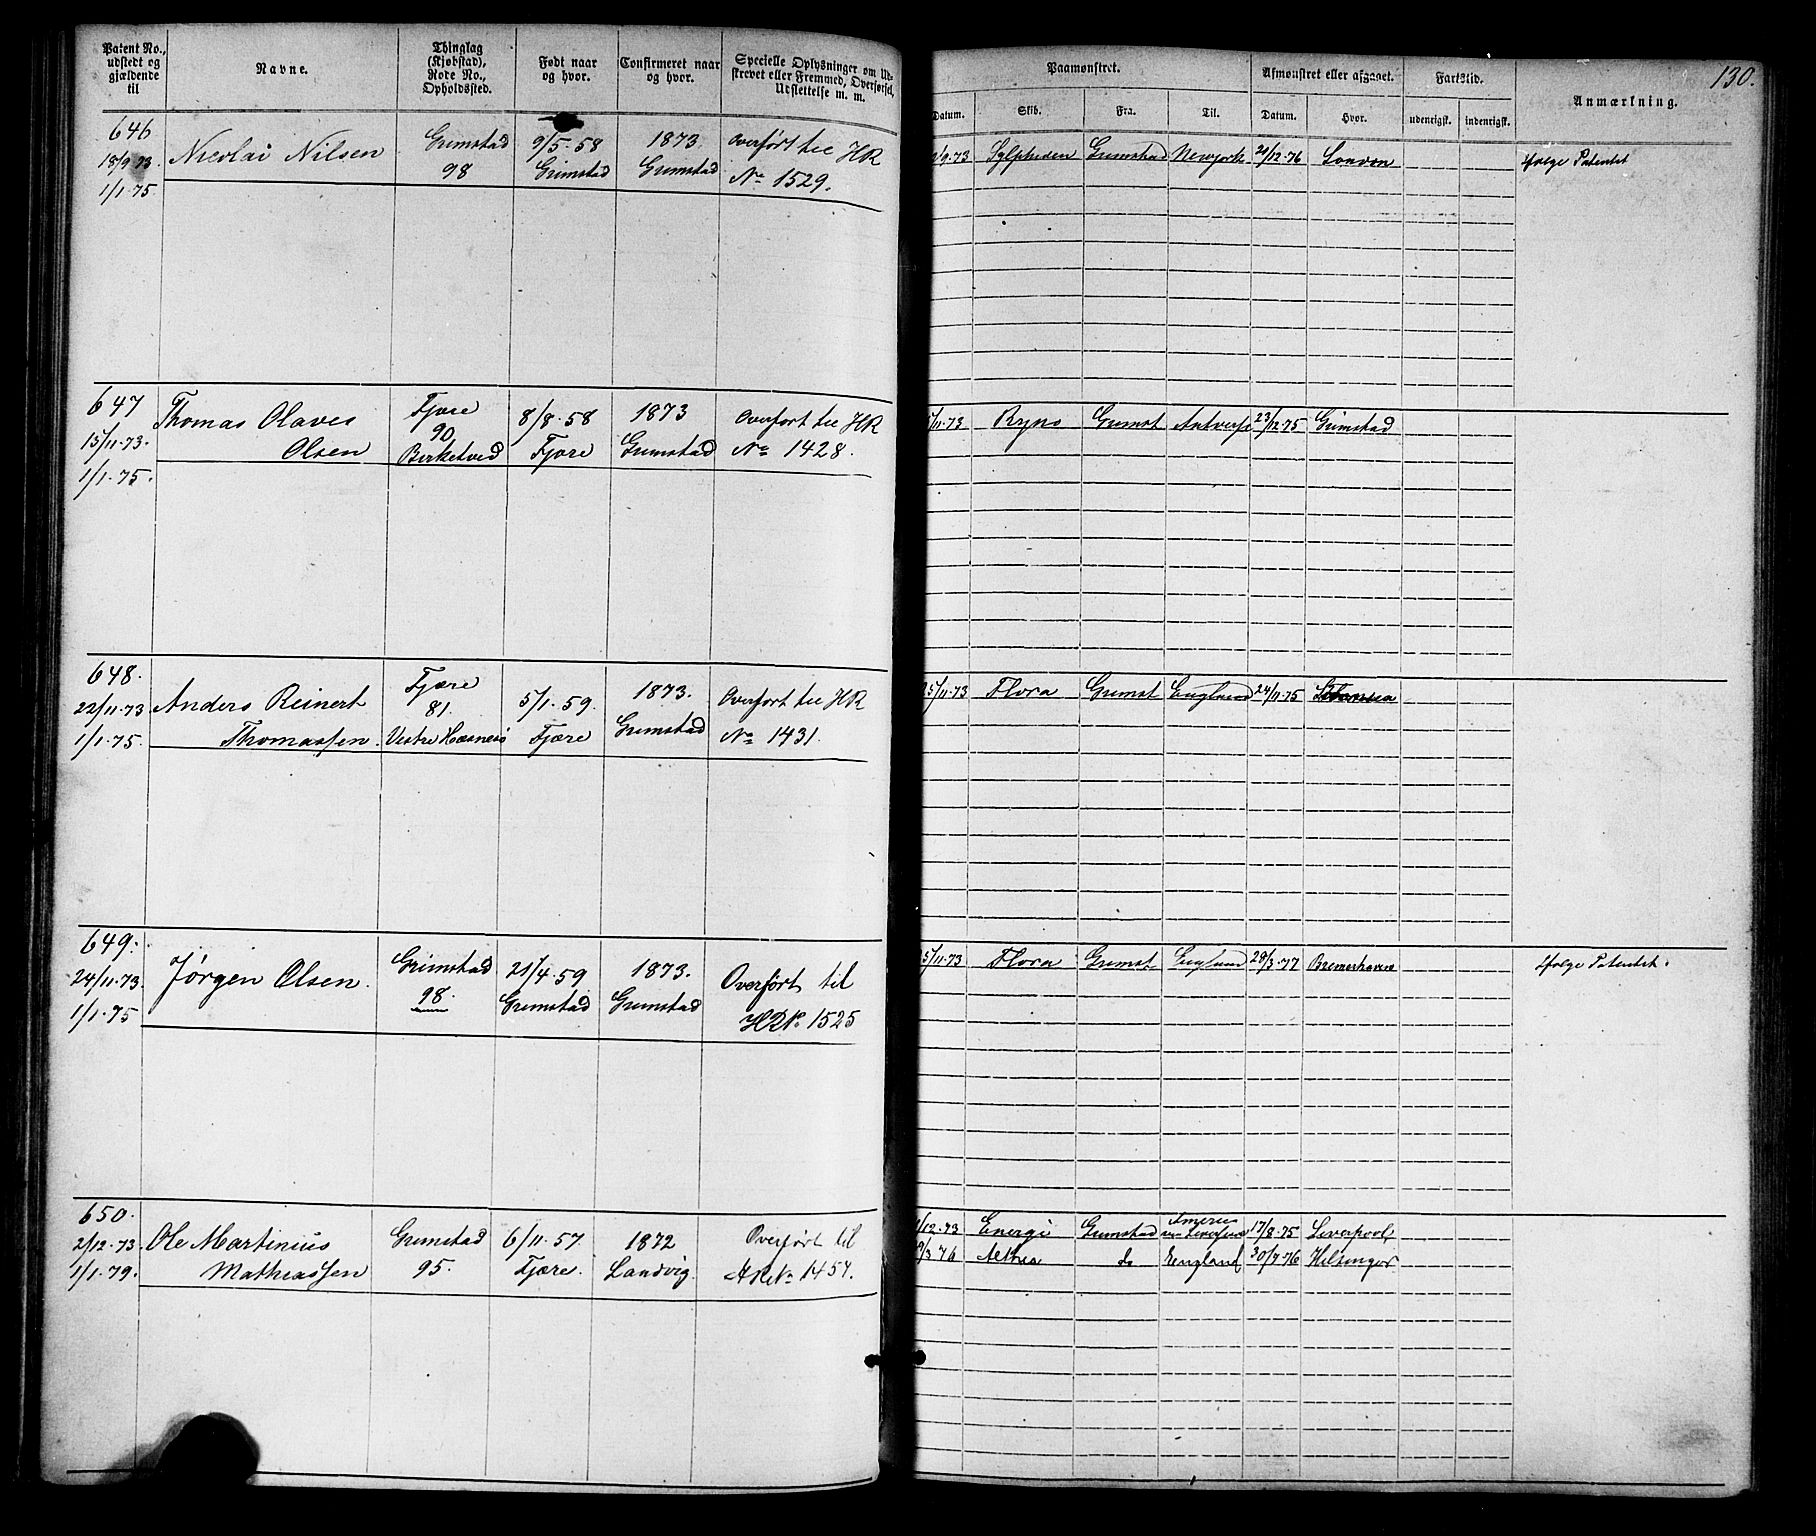 Patent No., udstedt og gjældende til
Navne.
Thinglag (Kjøbstad), Rode No., Opholdssted.
Født naar og hvor.
Confirmeret naar og hvor.
Specielle Oplysninger om Udskrevet eller Fremmed, Overførsel, Udslettelse m. m.
Paamønstret.
Datum.
Skib.
Fra.
Til.
Afmønstret eller afgaaet.
Datum.
Hvor.
Fartstid.
udenrigsk.
indenrigsk.
Anmærkning.
130.
646
18/9 73
1/1. 75
Nicolai Nilsen
Grimstad
98
9/5. 58
Grimstad
1873.
Grimstad
Overført til HR
No 1529.
/9.73 Sylpheden Grimstad Newyork 20/12.76 London
ifølge Patentet
647
15/11.73.
1/1.75.
Thomas Olaves
Olsen
Fjære
90
Birketved
8/8.58
Fjære
1873
Grimstad
Overført til HR
No 1428.
/11.73 Ryno Grimst 23/12.75 Grimstad
648.
22/11.73
1/1.75.
Anders Reinert
Thomassen.
Fjære
81.
Vestre Hæsnes
5/1.59.
Fjære
1873.
Grimstad
Overført til HR
No 1431.
25/11.73 Flora Grimst England 24/11.75
649.
24/11.73.
1/1.75
Jørgen Olsen.
Grimstad
98.
21/4.59
Grimstad
1873.
Grimstad
Overført til
HR No 1525
5/11.73 Flora Grimst. England 28/3.77 Bremerhaven
Ifølge Patentet.
650.
2/12.73
1/1.79.
Ole Martinius
Mathiassen
Grimstad
95.
6/11.57
Fjære.
1872
Landvig.
Overført til
HR No 1457.
/12.73 Energi Grimstad 17/8.75 Liverpool
/3.76 do England 30/9.76 Helsingør